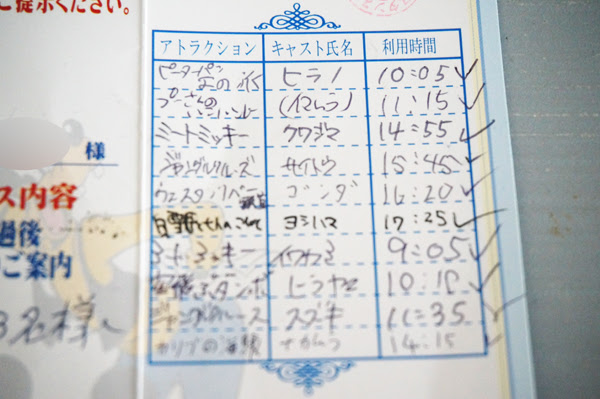 ご提示ください。
様
ス内容
過後
のご案内
3名様
アトラクション キャスト氏名 利用時間
ピーターパン 空の旅 ヒラノ 10:05 ✓
プーさんの 11:15 ✓
ミートミッキー クワジマ 14:55 ✓
ジャングルクルーズ サイトウ 15:45 ✓
ウエスタンリバー鉄道 ゴンダ 16:20 ✓
白雪姫と七人のこびと ヨシハマ 17:25 ✓
ミートミッキー 9:05 ✓
空飛ぶダンボ ヒラヤマ 10:15 ✓
ジャングルクルーズ スズキ 11:35 ✓
カリブの海賊 14:15 ✓